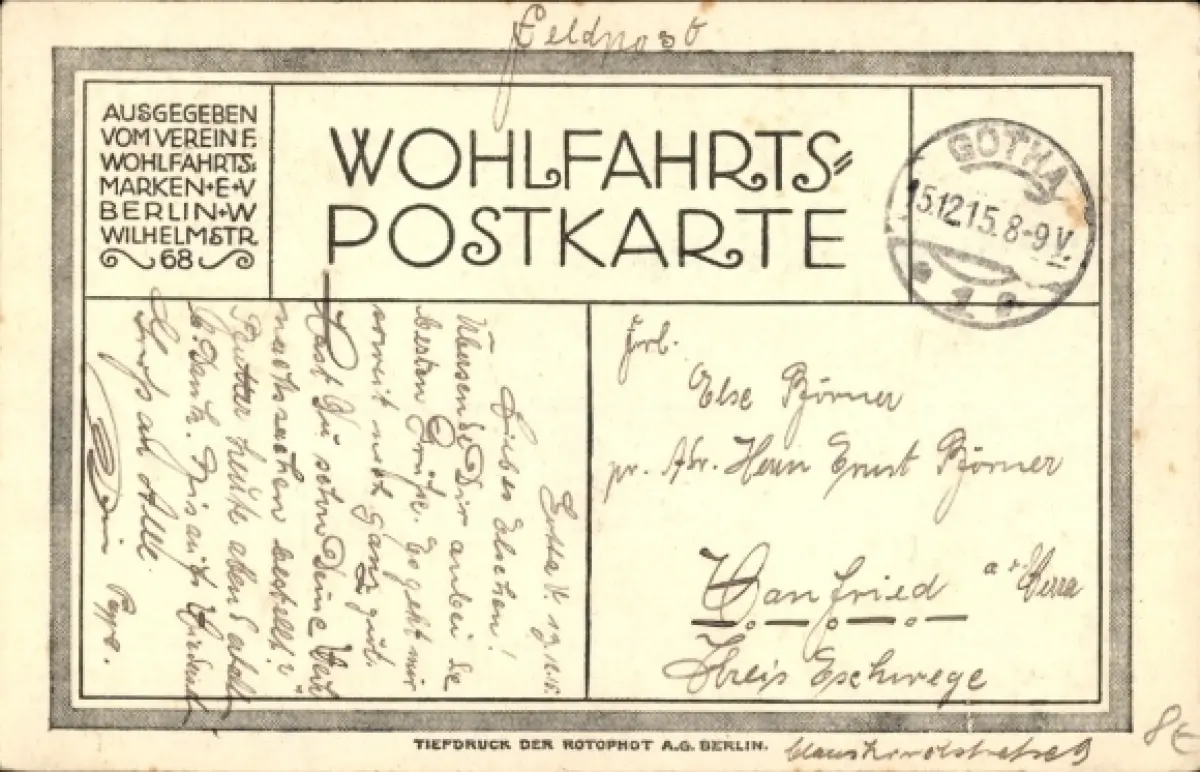 Feldpost
AUSGEGEBEN
VOM VEREIN F.
WOHLFAHRTS=
MARKEN•E•V
BERLIN•W
WILHELMSTR.
68
WOHLFAHRTS=
POSTKARTE
GOTHA
15.12.15. 8-9 V.
* 1 g
Gotha
Liebes Elschen!
Übersende Dir anbei die
besten Grüße. Es geht mir
soweit noch ganz gut.
Hast Du schon Deine
heute aben
b. Dank. Bis aufs Wiederseh
Gruß an Alle.
Dein
Frl.
Else
pr. Adr. Herrn Ernst
Wanfried a. Werra
Kreis Eschwege
TIEFDRUCK DER ROTOPHOT A.G. BERLIN.
8€